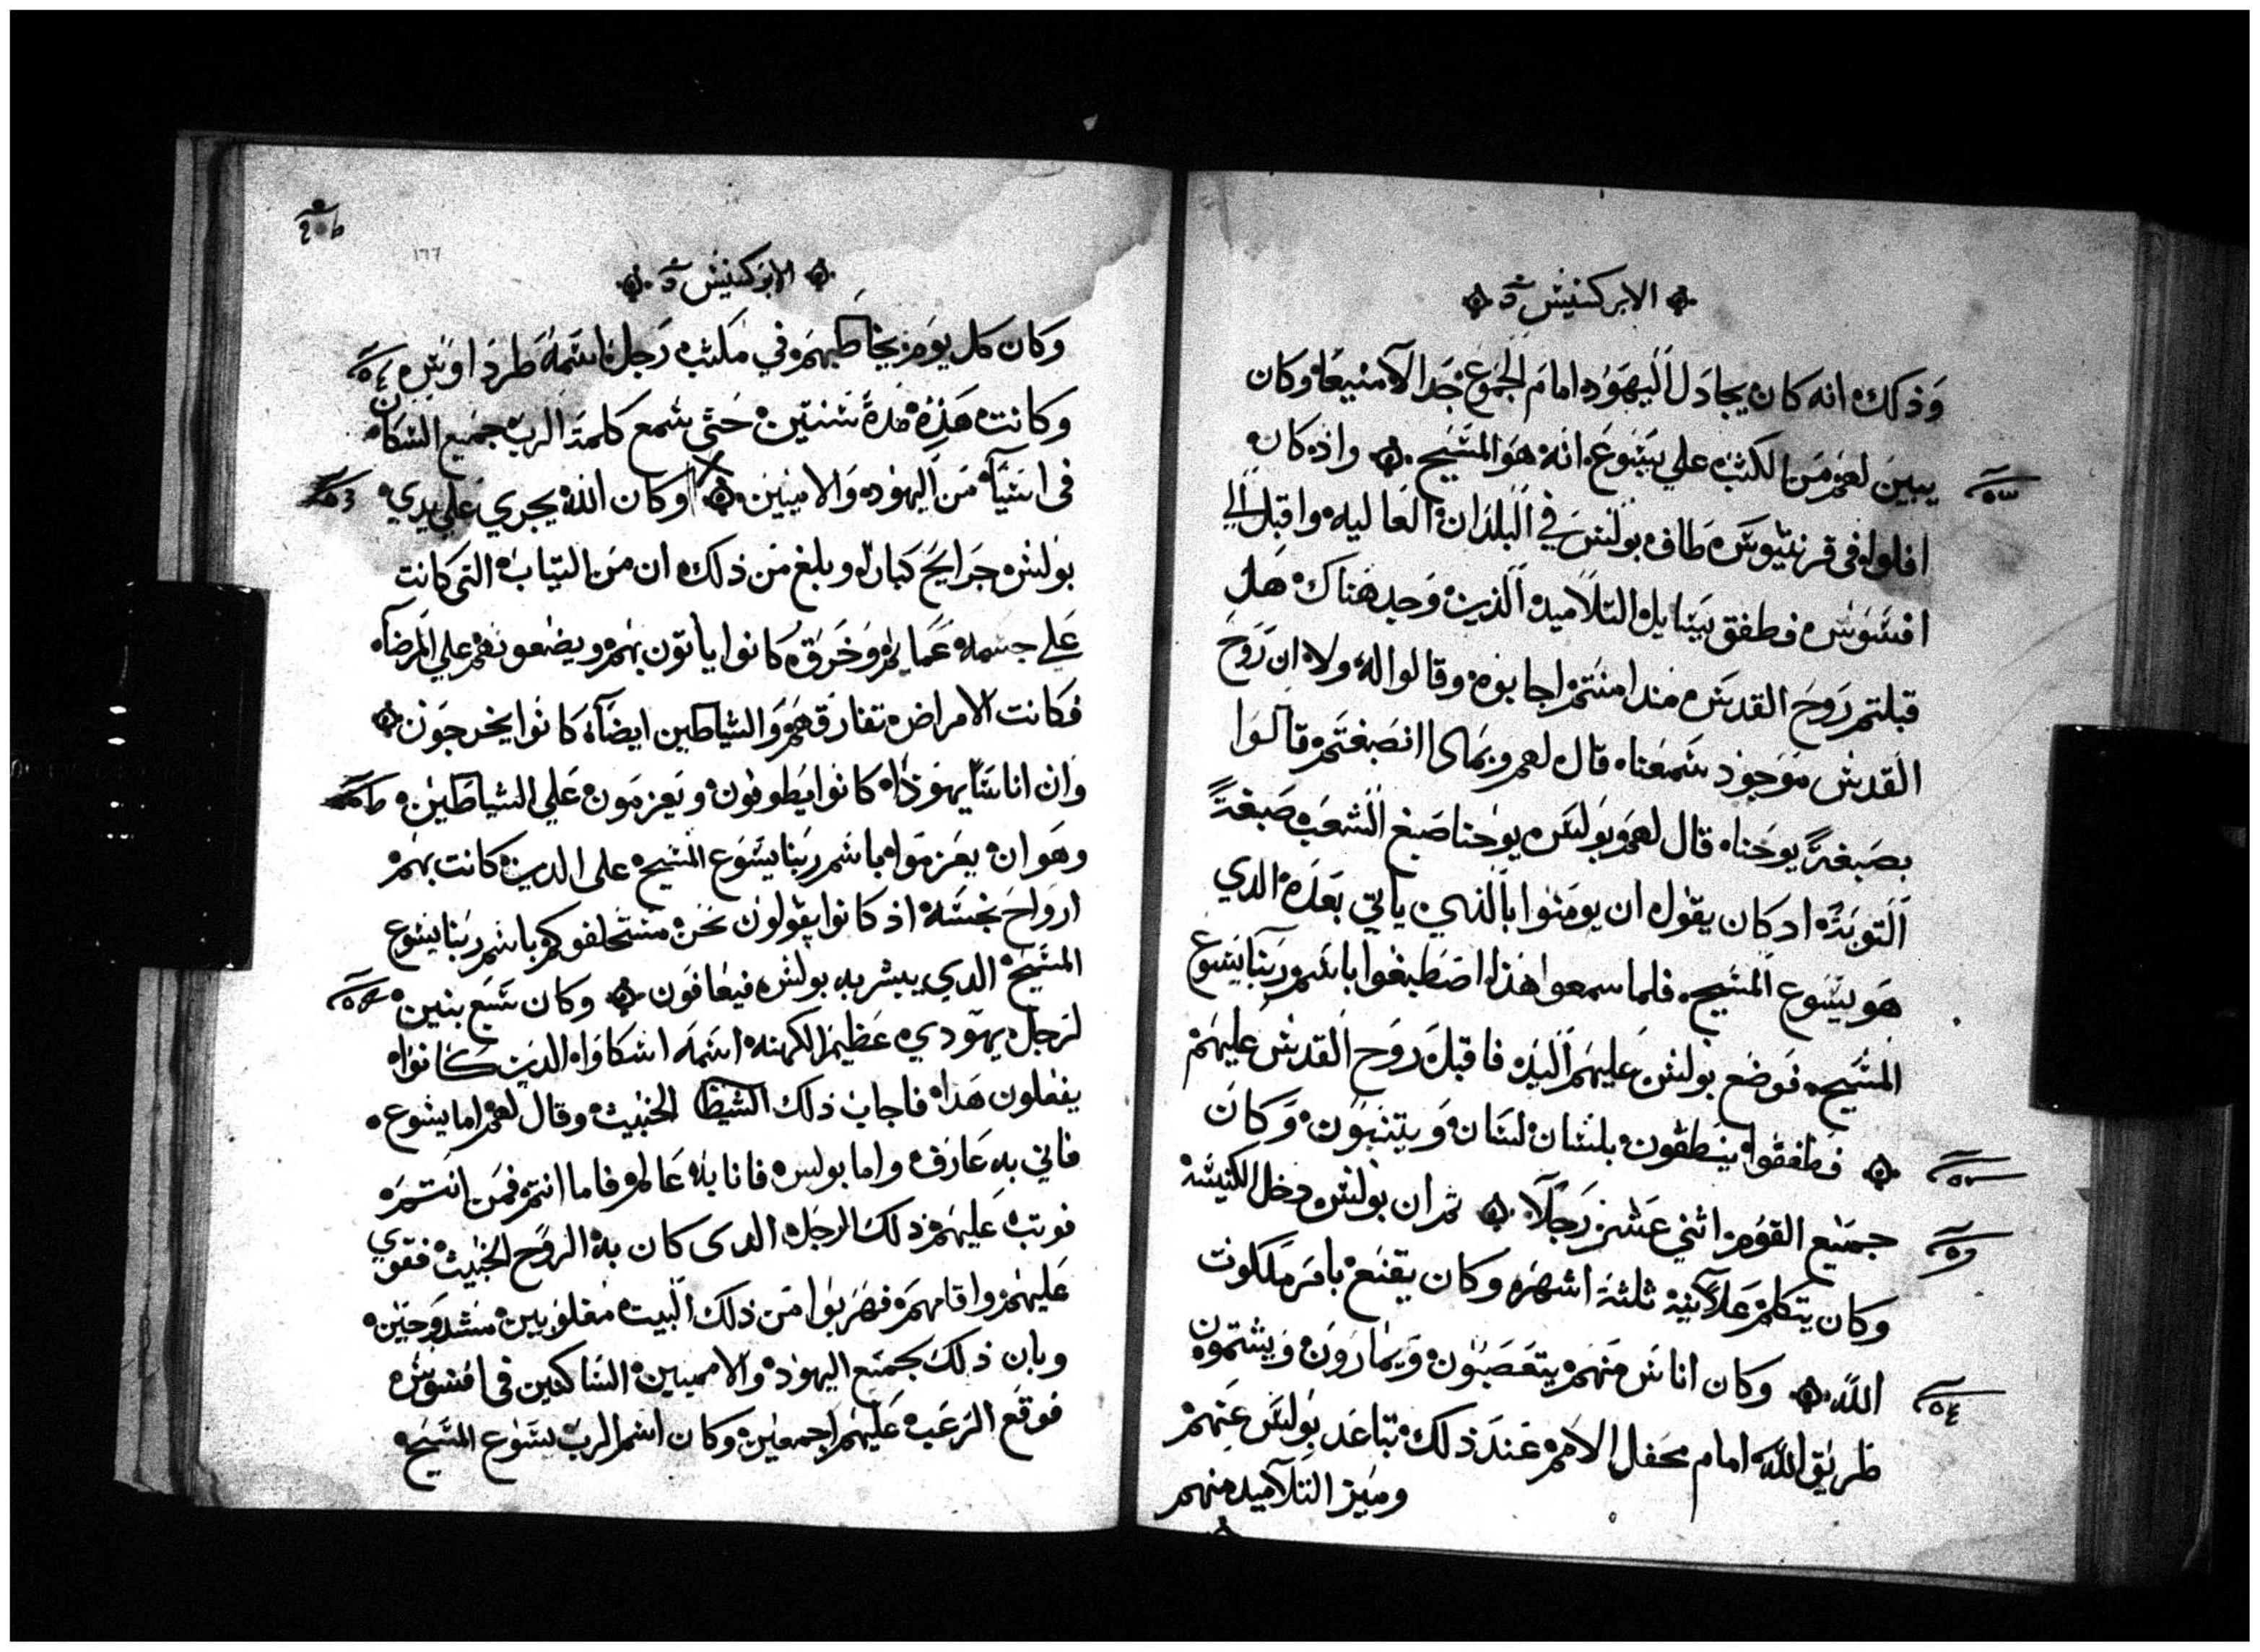 الابركسيس
وذلك انه كان يجادل اليهود امام الجموع جدالا منيعا وكان
يبين لهم من الكتب علي يسوع انه هو المسيح واذ كان
افلوا في قرنتيوس طاف بولس في البلدان العاليه واقبل الي
افسوس فطفق يسايل التلاميد الذين وجد هناك هل
قبلتم روح القدس مند امنتم اجابوه وقالوا له ولا ان روح
القدس موجود سمعنا قال لهم وبمادا انصبغتم قالوا
بصبغة يوحنا قال لهم بولس يوحنا صبغ الشعب صبغة
التوبة اد كان يقول ان يومنوا بالذي ياتي بعده الدي
هو يسوع المسيح فلما سمعوا هذا اصطبغوا باسم ربنا يسوع
المسيح فوضع بولس عليهم اليد فاقبل روح القدس عليهم
فطفقوا ينطقون بلسان لسان ويتنبون وكان
جميع القوم اثني عشر رجلا ثم ان بولس دخل الكنيسة
وكان يتكلم علانية ثلثة اشهر وكان يقنع بامر ملكوت
الله وكان اناس منهم يتعصبون ويمارون ويشتمون
طريق الله امام محفل الامم عند ذلك تباعد بولس عنهم
وميز التلاميد منهم
١٦٦
الابركسيس
وكان كل يوم يخاطبهم في مكتب رجل اسمه طردانوس
وكانت هذه مدة سنتين حتى سمع كلمة الرب جميع السكان
في اسيا من اليهود والاميين وكان الله يجري علي يدي
بولس جرايح كبار وبلغ من ذلك ان من التياب التي كانت
علي جسمه عمايم وخرق كانوا ياتون بهم ويضعونهم علي المرضا
فكانت الامراض تفارقهم والشياطين ايضا كانوا يخرجون
وان اناسا يهودا كانوا يطوفون ويعزمون علي الشياطين
وهوا ان يعزموا باسم ربنا يسوع المسيح على الدين كانت بهم
ارواح نجسه اذ كانوا يقولون نحن نستحلفوكم باسم ربنا يسوع
المسيح الدي يبشر به بولس فيعافون وكان سبع بنين
لرجل يهودي عظيم الكهنه اسمه اسكاوا الدين كانوا
يفعلون هدا فاجاب ذلك الشيطا الخبيث وقال لهم اما يسوع
فاني به عارف واما بولس فانا به عالم فاما انتم فمن انتم
فوتب عليهم ذلك الرجل الدى كان به الروح الخبيث فقوي
عليهم واقامهم فهربوا من ذلك البيت مغلوبين مشدوخين
وبان ذلك لجميع اليهود والامميين الساكنين في افسوس
فوقع الرعب عليهم اجمعين وكان اسم الرب يسوع المسيح